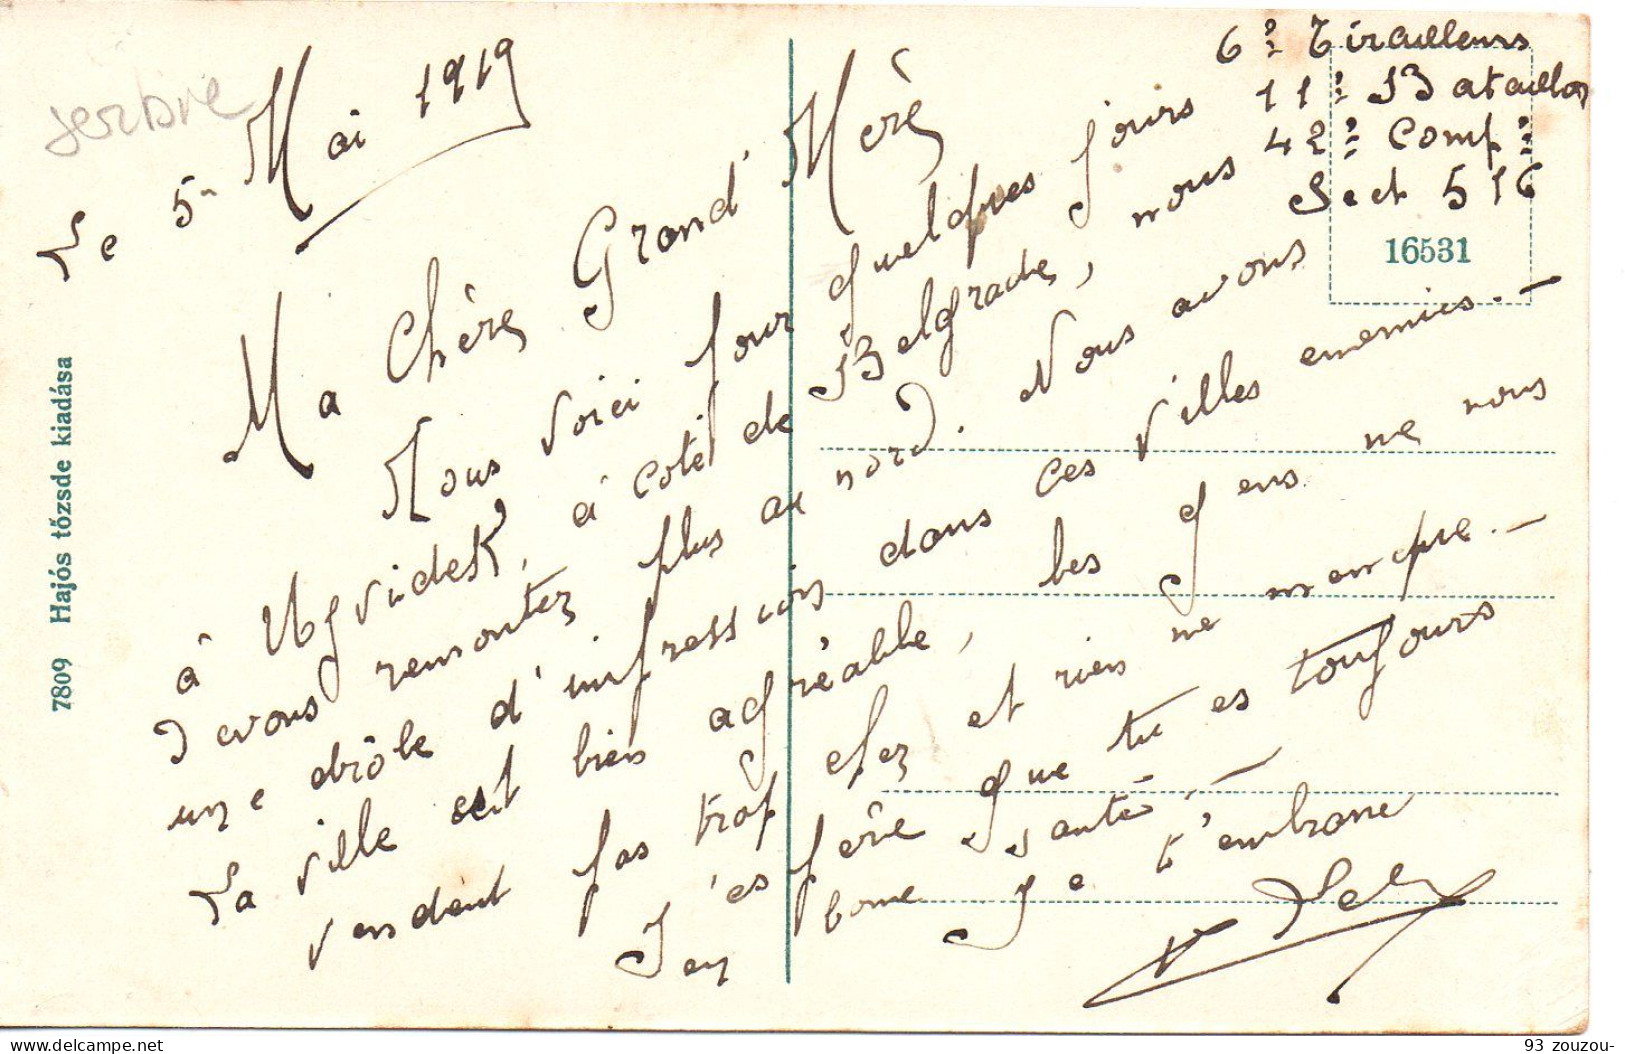 serbie
Le 5 Mai 1919
6e Tirailleurs
11e Bataillon
42e Compie
Sect 516
16531
Ma Chère Grand' Mère
Nous voici pour quelques jours
à Ujvidek, à coté de Belgrade, nous
avons remontez plus au nord. Nous avons
une drôle d'impression dans ces villes enemies. —
La ville est bien agréable, les gens ne nous
vendent pas trop chez et rien ne manque. —
J'espère que tu es toujours
en bonne santé. —
Je t'embrasse
7809 Hajós tőzsde kiadása
93 zouzou-